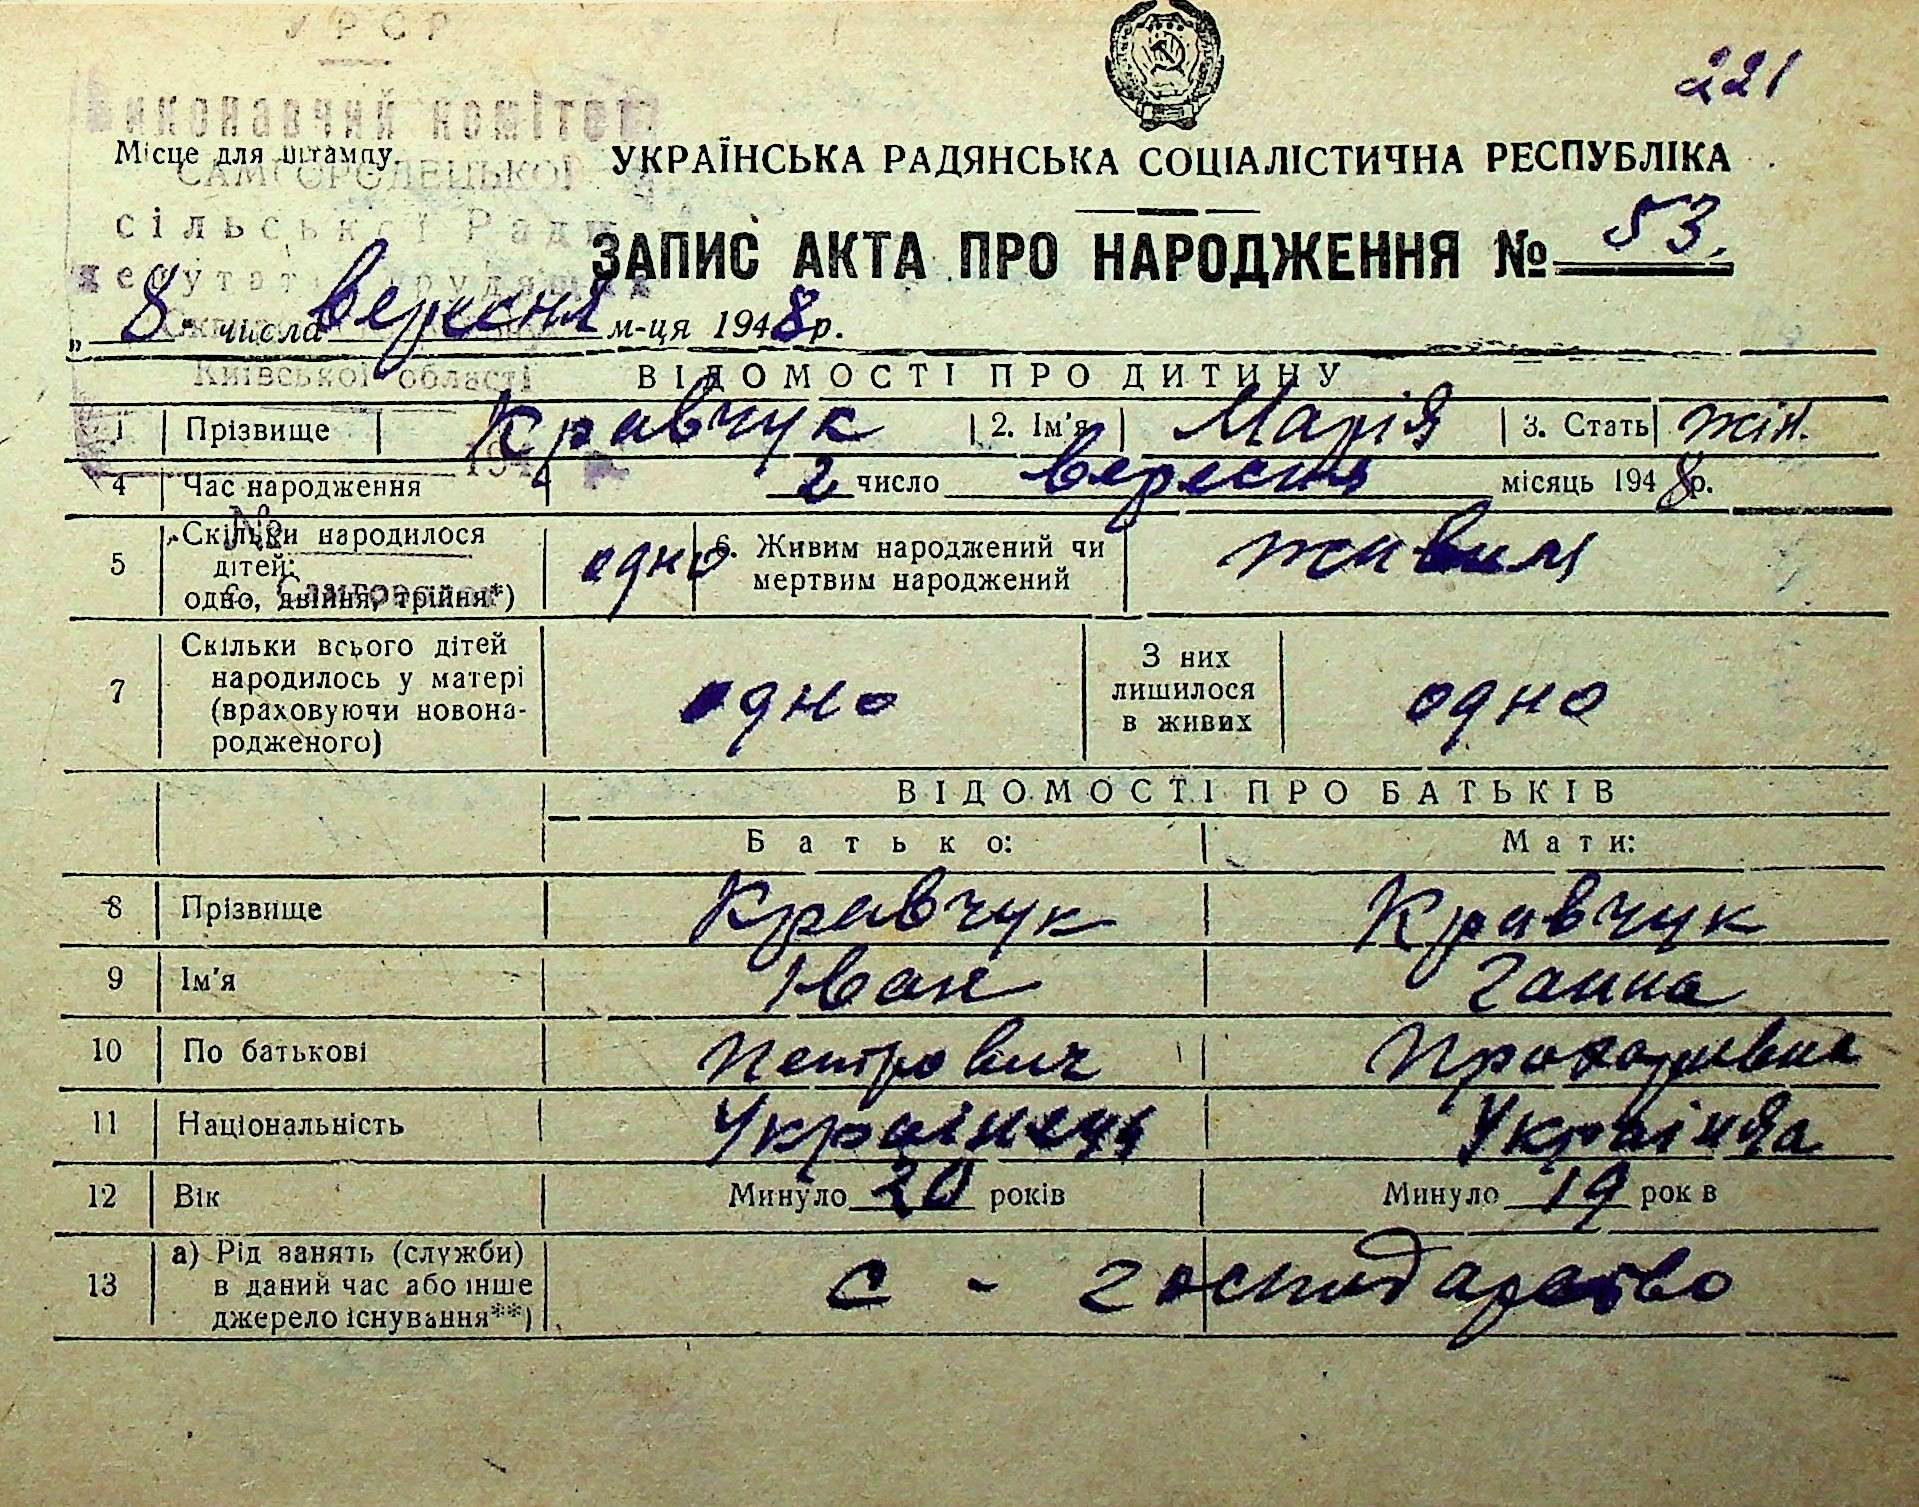 УРСР
221
Виконавчий комітет
Місце для штампу
УКРАЇНСЬКА РАДЯНСЬКА СОЦІАЛІСТИЧНА РЕСПУБЛІКА
САМГОРОДЕЦЬКОЇ
сільської Ради
ЗАПИС АКТА ПРО НАРОДЖЕННЯ № 53.
депутатів трудящих
„ 8 " числа вересня м-ця 1948 р.
Київської області
ВІДОМОСТІ ПРО ДИТИНУ
1 Прізвище Кравчук 2. Ім'я Марія 3. Стать жін.
194
4 Час народження 2 число вересня місяць 1948 р.
№
5 Скільки народилося дітей: одно, двійня, трійня*) одно 6. Живим народжений чи мертвим народжений живим
7 Скільки всього дітей народилось у матері (враховуючи новонародженого) одно З них лишилося в живих одно
ВІДОМОСТІ ПРО БАТЬКІВ
Батько: Мати:
8 Прізвище Кравчук Кравчук
9 Ім'я Іван Ганна
10 По батькові Петрович
11 Національність Українець Українка
12 Вік Минуло 20 років Минуло 19 рок в
13 а) Рід занять (служби) в даний час або інше джерело існування**) с - господарство